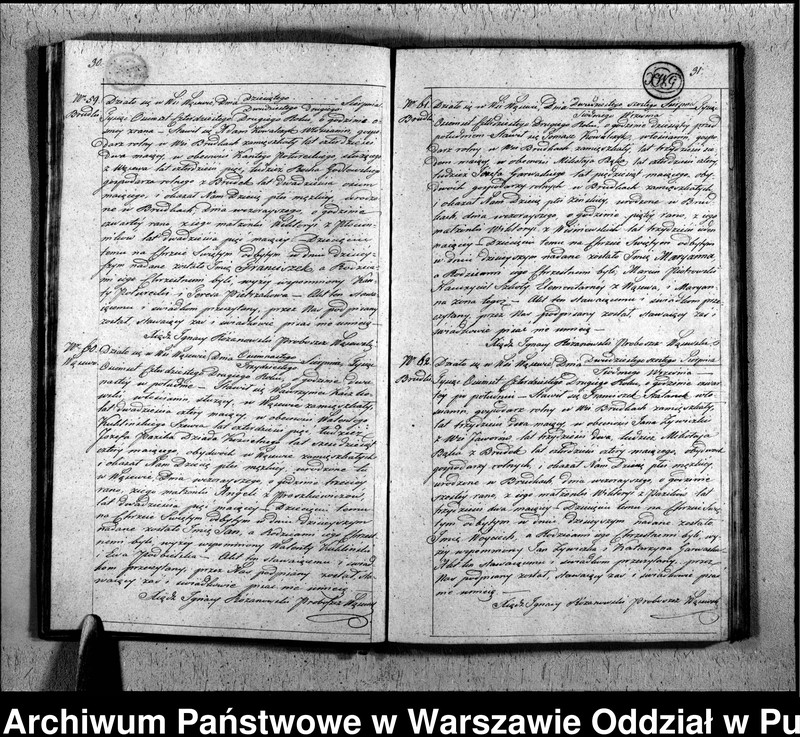 30.
No 59.
Brudki
Działo się w Wsi Wąsewie, Dnia dziesiątego
Dwudziestego drugiego Sierpnia
Tysiąc Ośmset Czterdziestego Drugiego Roku, o godzinie
z rana – Stawił się Adam Kowalczyk Włościanin
darz rolny w Wsi Brudkach zamieszkały lat czterdzieści
Dwa mający, w obecności Kantego
z Wąsewa lat czterdzieści pięć, tudzież
gospodarza rolnego z Brudek lat dwadzieścia ośm
mającego, i okazał Nam Dziecię płci męzkiej, urodzo
ne w Brudkach, Dnia wczorayszego, o godzinie
czwarty rano, z iego małżonki Wiktoryi z
lat dwadzieścia pięć mający – Dziecięciu
temu na Chrzcie Świętym odbytym w dniu dzisiey
szym nadane zostało Imię Franciszek, a Rodzica
mi iego Chrzestnemi byli, wyżey wspomniony Kan
ty i Teresa Pietrzakowa – Akt ten Stawa
iącemu i świadkom przeczytany, przez Nas podpisany
został, Stawaiący zaś i świadkowie pisać nie umieią –
Xiądz Ignacy Rożanowski Proboszcz Wąsewski
No 60.
Wąsewo.
Działo się w Wsi Wąsewie, Dnia Ośmnastego
Trzydziestego Sierpnia, Tysiąc
Ośmset Czterdziestego Drugiego Roku, o godzinie dwu
nastey w południe – Stawił się Wawrzyniec
włościanin służący, w Wąsewie zamieszkały,
lat dwadzieścia cztery mający, w obecności Walentego
lat czterdzieści pięć, tudzież
Józefa Dziada Kościelnego lat sześćdziesiąt
cztery mającego, obydwóch w Wąsewie zamieszkałych
i okazał Nam Dziecię płci męzkiej, urodzone tu
w Wąsewie, Dnia wczorayszego, o godzinie trzeciey
rano, z iego małżonki Anieli z
lat dwadzieścia pięć mający – Dziecięciu temu
na Chrzcie Świętym odbytym w dniu dzisieyszym
nadane zostało Imię Jan, a Rodzicami iego Chrzest
nemi byli, wyżey wspomniony Walenty
i Ewa – Akt ten stawaiącemu i świad
kom przeczytany, przez Nas podpisany został, Sta
waiący zaś i świadkowie pisać nie umieią
Xiądz Ignacy Rożanowski Proboszcz Wąsewski
31.
No 61.
Brudki
Działo się w Wsi Wąsewie, Dnia Dwudziestego szóstego Sierpnia
Siódmego Września Tysiąc
Ośmset Czterdziestego Drugiego Roku, o godzinie dziesiąty przed
południem Stawił się Tomasz Kowalczyk, włościanin gospo
darz rolny w Wsi Brudkach zamieszkały, lat trzydzieści sie
dem mający, w obecności Mikołaja Bąka, lat czterdzieści cztery,
tudzież Józefa Gawrońskiego lat pięćdziesiąt mającego, oby
dwóch gospodarzy rolnych w Brudkach zamieszkałych
i okazał Nam Dziecię płci żeńskiey, urodzone w Brud
kach, dnia wczorayszego, o godzinie piąty rano, z iego
małżonki Wiktoryi z lat trzydzieści
mający – Dziecięciu temu na Chrzcie Świętym odbytym
w dniu dzisieyszym nadane zostało Imię Maryanna
a Rodzicami iego Chrzestnemi byli, Marcin Piotrowski
Nauczyciel Szkoły Elementarney z Wąsewa, i Maryan
na żona tegoż – Akt ten stawaiącemu i świadkom prze
czytany, przez Nas podpisany został, stawaiący zaś i
świadkowie pisać nie umieią –
Xiądz Ignacy Rożanowski Proboszcz Wąsewski
No 62.
Brudki
Działo się w Wsi Wąsewie, Dnia Dwudziestego szóstego Sierpnia
Siódmego Września –
Tysiąc Ośmset Czterdziestego Drugiego Roku, o godzinie czwar
ty po południu – Stawił się Franciszek włó
ścianin, gospodarz rolny w Wsi Brudkach zamieszkały,
lat trzydzieści dwa mający, w obecności Jana Żywiczki
z Wsi Jaworow lat trzydzieści dwa, tudzież Mikołaja
Bąka z Brudek lat czterdzieści cztery mającego, obydwóch
gospodarzy rolnych, i okazał Nam Dziecię płci męzkiey,
urodzone w Brudkach dnia wczorayszego, o godzinie
szósty rano, z iego małżonki Wiktoryi z lat
trzydzieści dwa mający – Dziecięciu temu na Chrzcie Świę
tym odbytym w dniu dzisieyszym nadane zostało
Imię Woyciech, a Rodzicami iego Chrzestnemi byli, wy
żey wspomniony Jan Żywiczka i Katarzyna
Akt ten Stawaiącemu i świadkom przeczytany, przez
Nas podpisany został, Stawaiący zaś i świadkowie pisać
nie umieią –
Xiądz Ignacy Rożanowski Proboszcz Wąsewski
Archiwum Państwowe w Warszawie Oddział w Pu